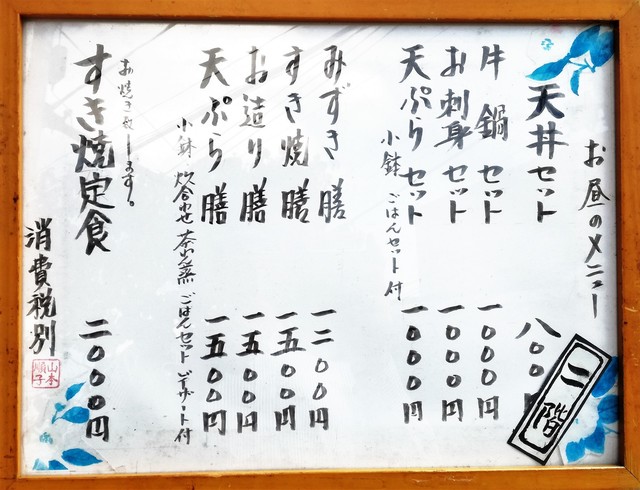 お昼のメニュー
天丼セット 八〇〇円
牛鍋セット 一〇〇〇円
お刺身セット 一〇〇〇円
天ぷらセット 一〇〇〇円
小鉢 ごはんセット付
みずき膳 一二〇〇円
すき焼膳 一五〇〇円
お造り膳 一五〇〇円
天ぷら膳 一五〇〇円
小鉢 炊合わせ 茶わん蒸 ごはんセット デザート付
お焼きします。
すき焼定食 二〇〇〇円
消費税別
山本
順子
二階